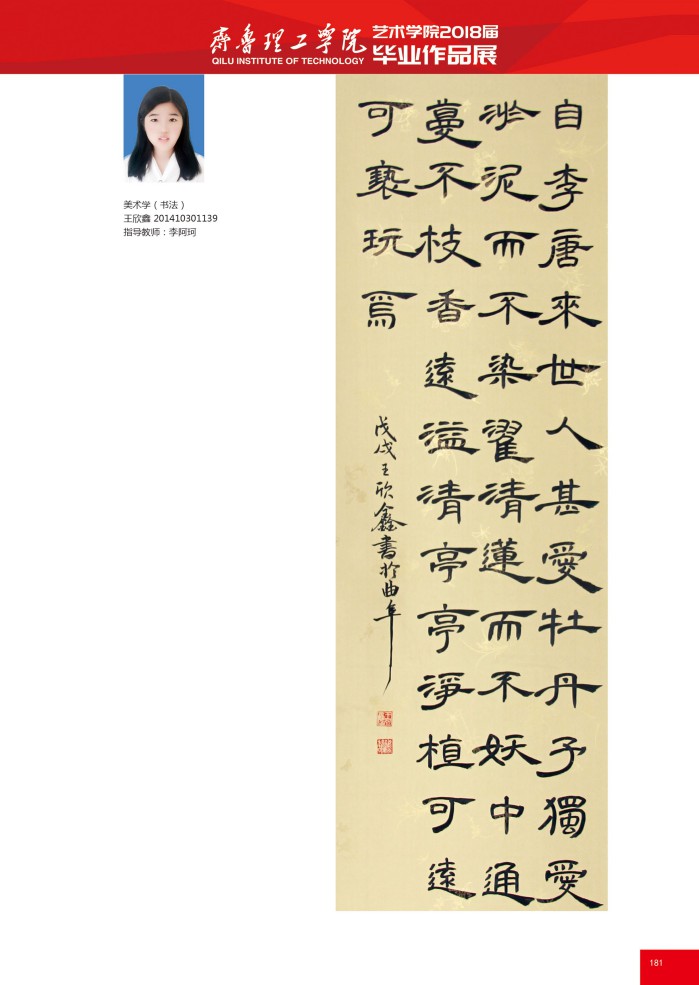 齐鲁理工学院
QILU INSTITUTE OF TECHNOLOGY
艺术学院2018届
毕业作品展
美术学（书法）
王欣鑫 201410301139
指导教师：李阿珂
自李唐來世人甚愛牡丹予獨愛
淤泥而不染濯清蓮而不妖中通
蔓不枝香遠溢清亭亭淨植可遠
可褻玩焉
戊戌王欣鑫書於曲阜
181